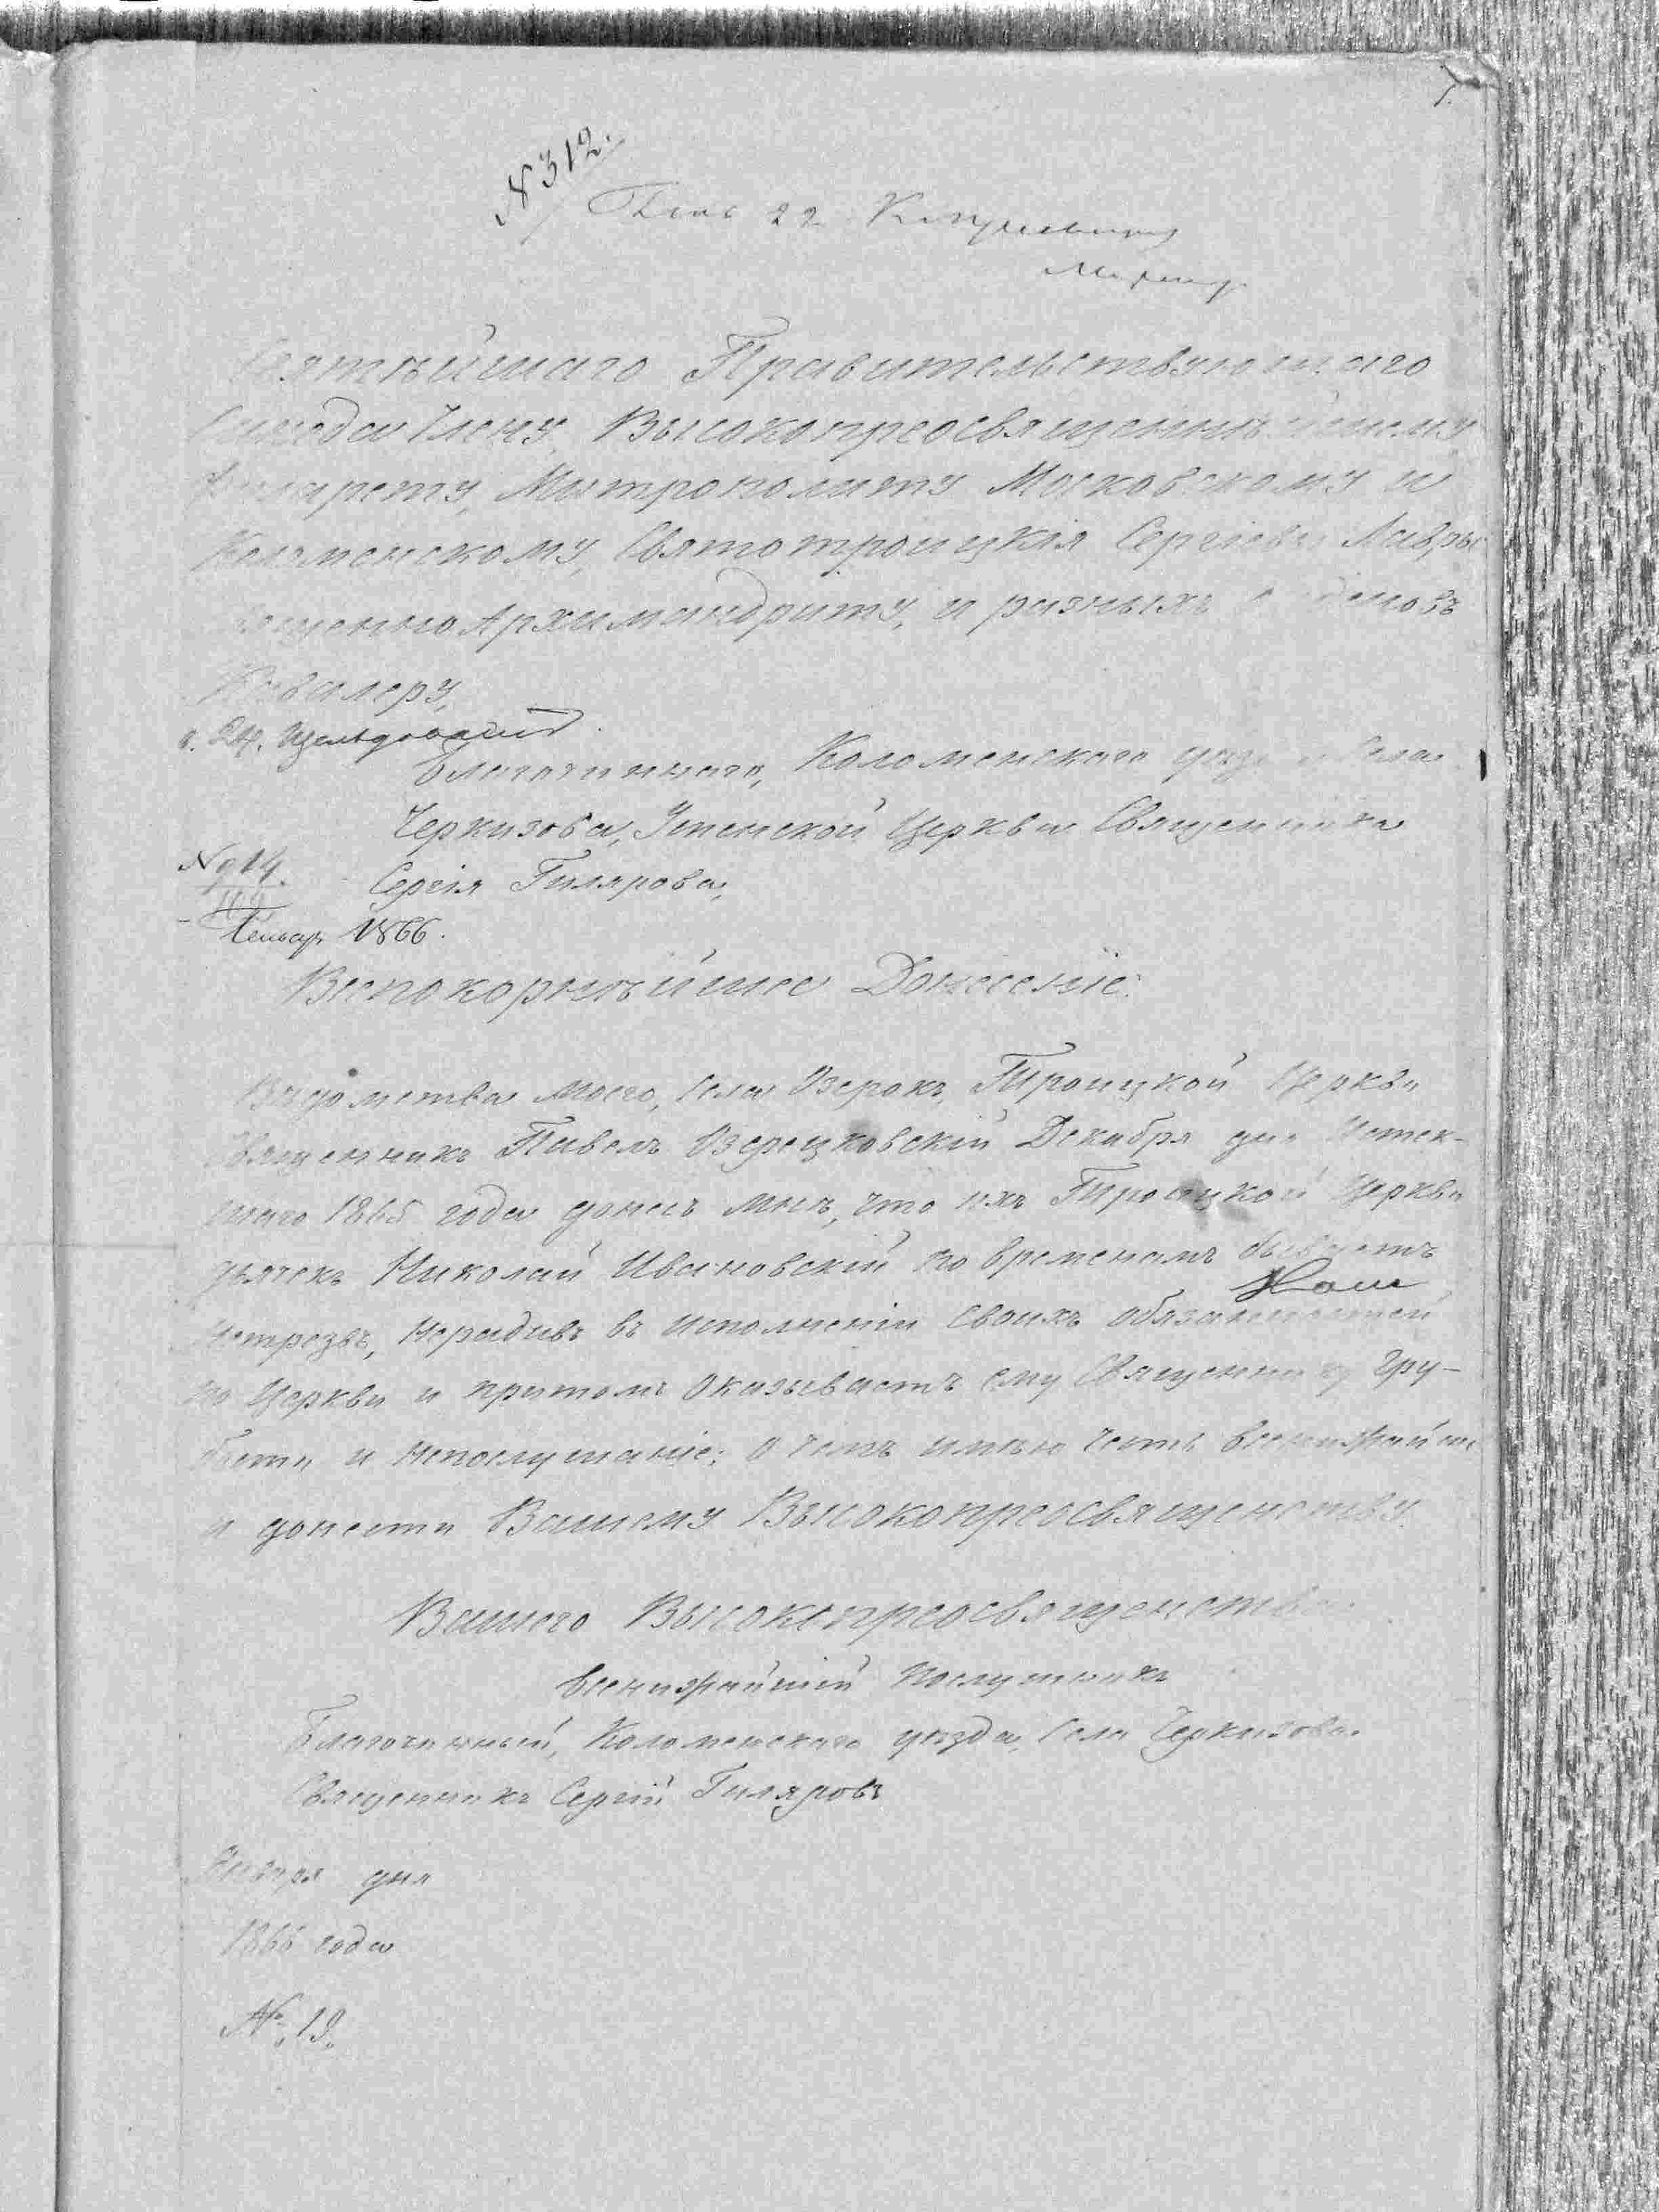 № 312.
22
Святѣйшаго Правительствующаго
Синода Члену, Высокопреосвященнѣйшему
Филарету, Митрополиту Московскому и
Коломенскому, Святотроицкія Сергіевы Лавры
Священно Архимандриту, и разныхъ Орденовъ
Кавалеру,
Благочиннаго, Коломенскаго уѣзда Села
Черкизова, Успенской Церкви Священника
№ 914.
Сергія Гилярова,
Генвар 1866.
Всепокорнѣйшее Донесеніе.
Вѣдомства Моего, Села Озерокъ, Троицкой Церкви
Священникъ Павелъ Озерецковскій Декабря дня Истек-
шаго 1865 года донесъ Мнѣ, что ихъ Троицкой Церкви
дьячекъ Николай Ивановскій по временамъ бываетъ
Нетрезвъ, Нерадивъ въ исполненіи Своихъ обязанностей
по Церкви и притомъ Оказываетъ ему Священнику Гру-
бости и Непослушаніе; о чемъ имѣю честь всенижайше
и донести Вашему Высокопреосвященству.
Вашего Высокопреосвященства
всенижайшій Послушникъ
Благочинный, Коломенскаго уѣзда, Села Черкизова
Священникъ Сергій Гиляровъ
Января дня
1866 года
№ 19.